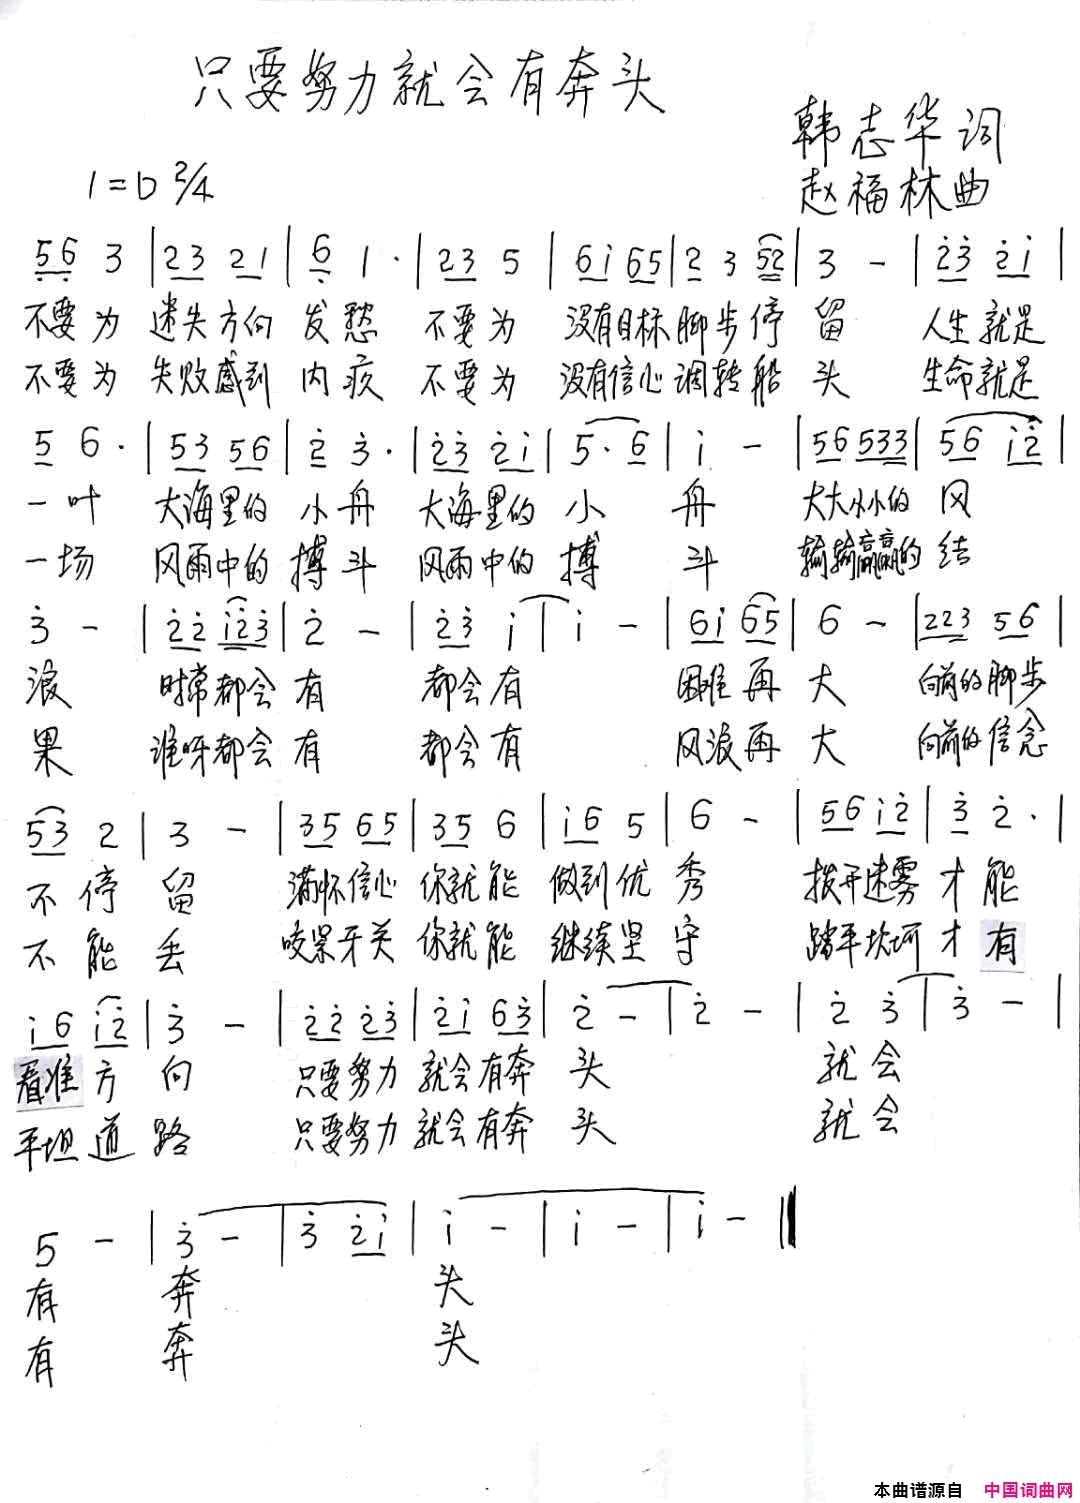 只要努力就会有奔头
韩志华词
1=D 2/4
赵福林曲
56 3 | 23 21 | 6 1· | 23 5 | 6i 65 | 2 3 52 | 3 - | 23 2i |
不要为 迷失方向 发愁 不要为 没有目标 脚步停 留 人生就是
不要为 失败感到 内疚 不要为 没有信心 调转船 头 生命就是
5 6· | 53 56 | 2 3· | 23 2i | 5· 6 | i - | 56 533 | 56 i2 |
一叶 大海里的 小舟 大海里的 小 舟 大大小小的 风
一场 风雨中的 搏斗 风雨中的 搏 斗 输输赢赢的 结
3 - | 22 i23 | 2 - | 23 i | i - | 6i 65 | 6 - | 223 56 |
浪 时常都会 有 都会有 困难再 大 向前的脚步
果 谁呀都会 有 都会有 风浪再 大 向前的信念
53 2 | 3 - | 35 65 | 35 6 | i6 5 | 6 - | 56 i2 | 3 2· |
不停 留 满怀信心 你就能 做到优 秀 拨开迷雾 才能
不能 丢 咬紧牙关 你就能 继续坚 守 踏平坎坷 才有
i6 i2 | 3 - | 22 23 | 2i 63 | 2 - | 2 - | 2 3 | 3 - |
看准方 向 只要努力 就会有奔 头 就会
平坦道 路 只要努力 就会有奔 头 就会
5 - | 3 - | 3 2i | i - | i - | i - ‖
有 奔 头
有 奔 头
本曲谱源自 中国词曲网